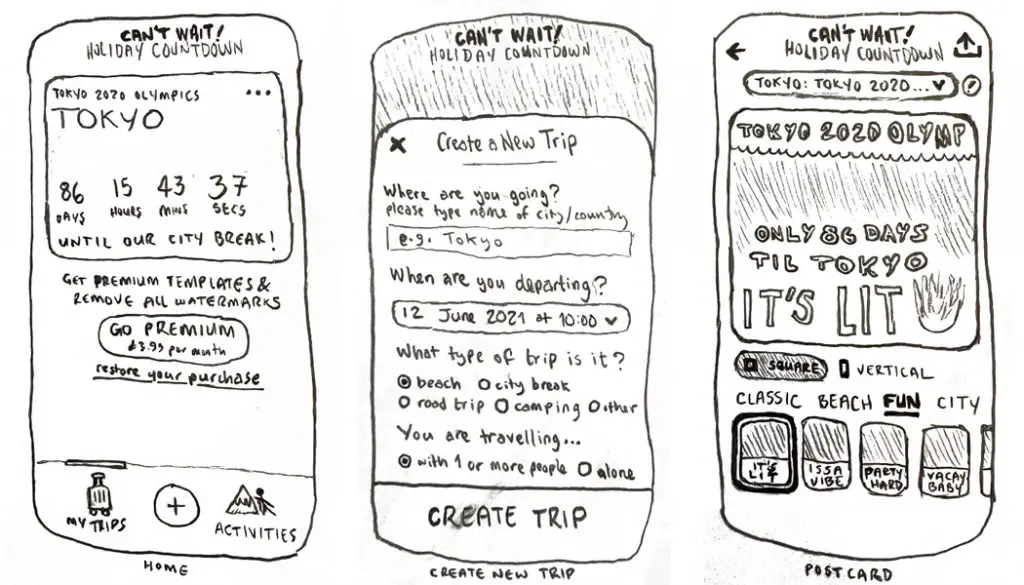 CAN'T WAIT!
HOLIDAY COUNTDOWN
TOKYO 2020 OLYMPICS
TOKYO
86 15 43 37
DAYS HOURS MINS SECS
UNTIL OUR CITY BREAK!
GET PREMIUM TEMPLATES &
REMOVE ALL WATERMARKS
GO PREMIUM
£3.99 per month
restore your purchase
MY TRIPS
ACTIVITIES
HOME
CAN'T WAIT!
HOLIDAY COUNTDOWN
Create a New Trip
Where are you going?
please type name of city/country
e.g. Tokyo
When are you departing?
12 June 2021 at 10:00
What type of trip is it?
beach city break
road trip camping other
You are travelling...
with 1 or more people alone
CREATE TRIP
CREATE NEW TRIP
CAN'T WAIT!
HOLIDAY COUNTDOWN
TOKYO: TOKYO 2020... ?
TOKYO 2020 OLYMP
ONLY 86 DAYS
TIL TOKYO
IT'S LIT
SQUARE VERTICAL
CLASSIC BEACH FUN CITY
IT'S LIT
ISSA VIBE
PARTY HARD
VACAY BABY
POSTCARD